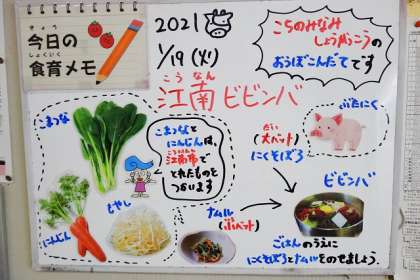 きょう
今日の
しょくいく
食育メモ
2021
1/19(火)
こちのみなみ
しょうがっこうの
おうぼこんだてです
こうなん
江南ビビンバ
こまつな
こまつなと
にんじんは、
こうなんし
江南市で
とれたものを
つかいます
にんじん
もやし
ナムル
(小バット)
ぶたにく
だい
(大バット)
にくそぼろ
ビビンバ
ごはんのうえに
にくそぼろとナムルをのせましょう。